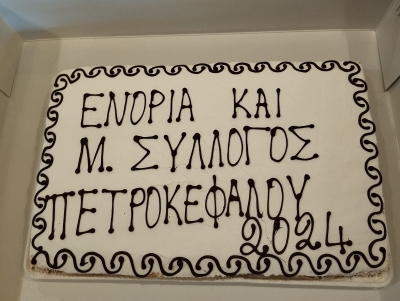 ΕΝΟΡΙΑ ΚΑΙ
Μ. ΣΥΛΛΟΓΟΣ
ΠΕΤΡΟΚΕΦΑΛΟΥ
2024